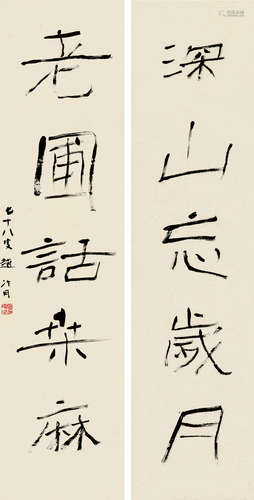 深山忘歲月
老圃話桑麻
七十八叟趙冷月